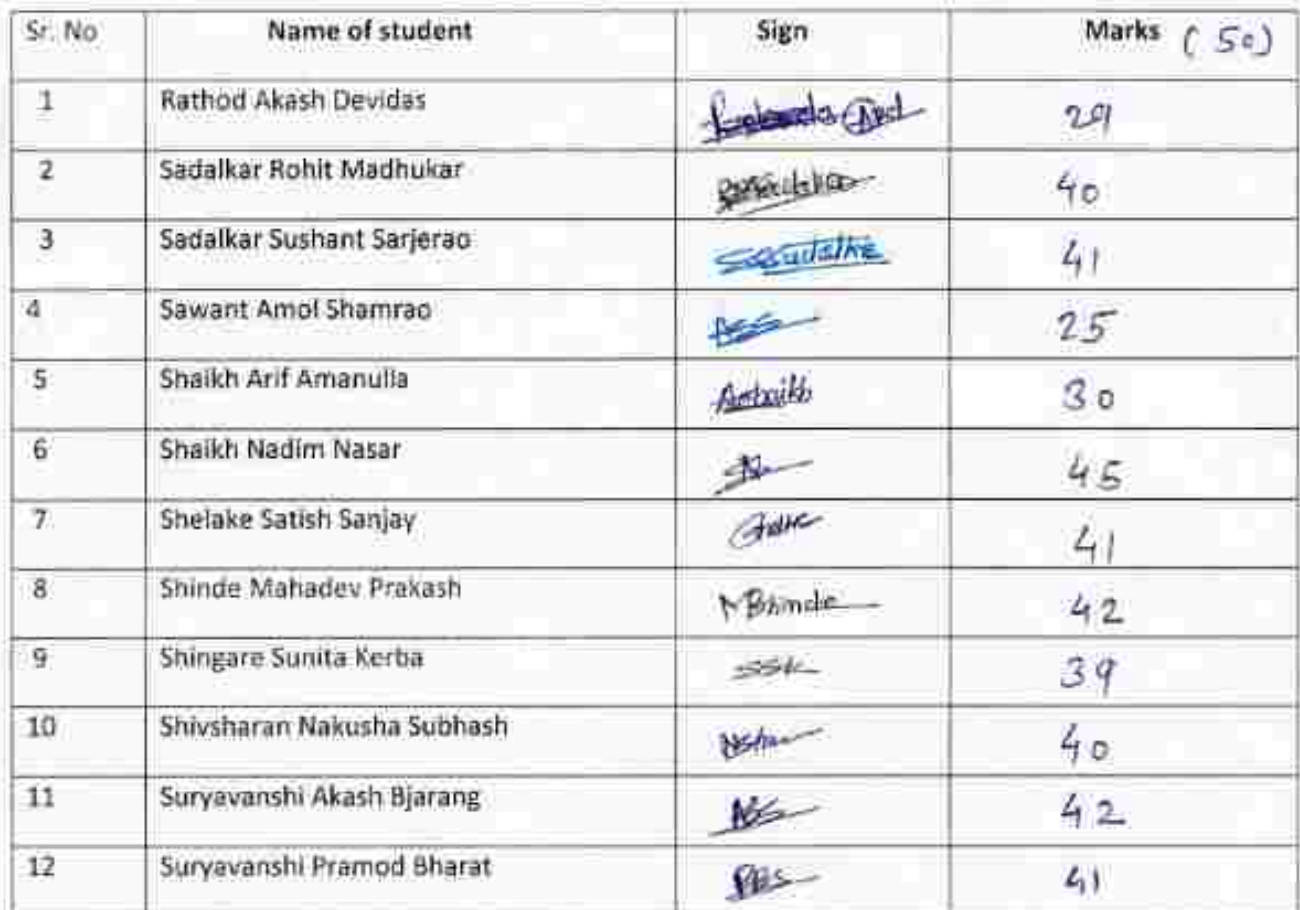 Sr. No Name of student Sign Marks (50)
1 Rathod Akash Devidas 29
2 Sadalkar Rohit Madhukar 40
3 Sadalkar Sushant Sarjerao 41
4 Sawant Amol Shamrao ASS 25
5 Shaikh Arif Amanulla 30
6 Shaikh Nadim Nasar 45
7 Shelake Satish Sanjay 41
8 Shinde Mahadev Prakash 42
9 Shingare Sunita Kerba SSK 39
10 Shivsharan Nakusha Subhash 40
11 Suryavanshi Akash Bjarang ABS 42
12 Suryavanshi Pramod Bharat PBS 41